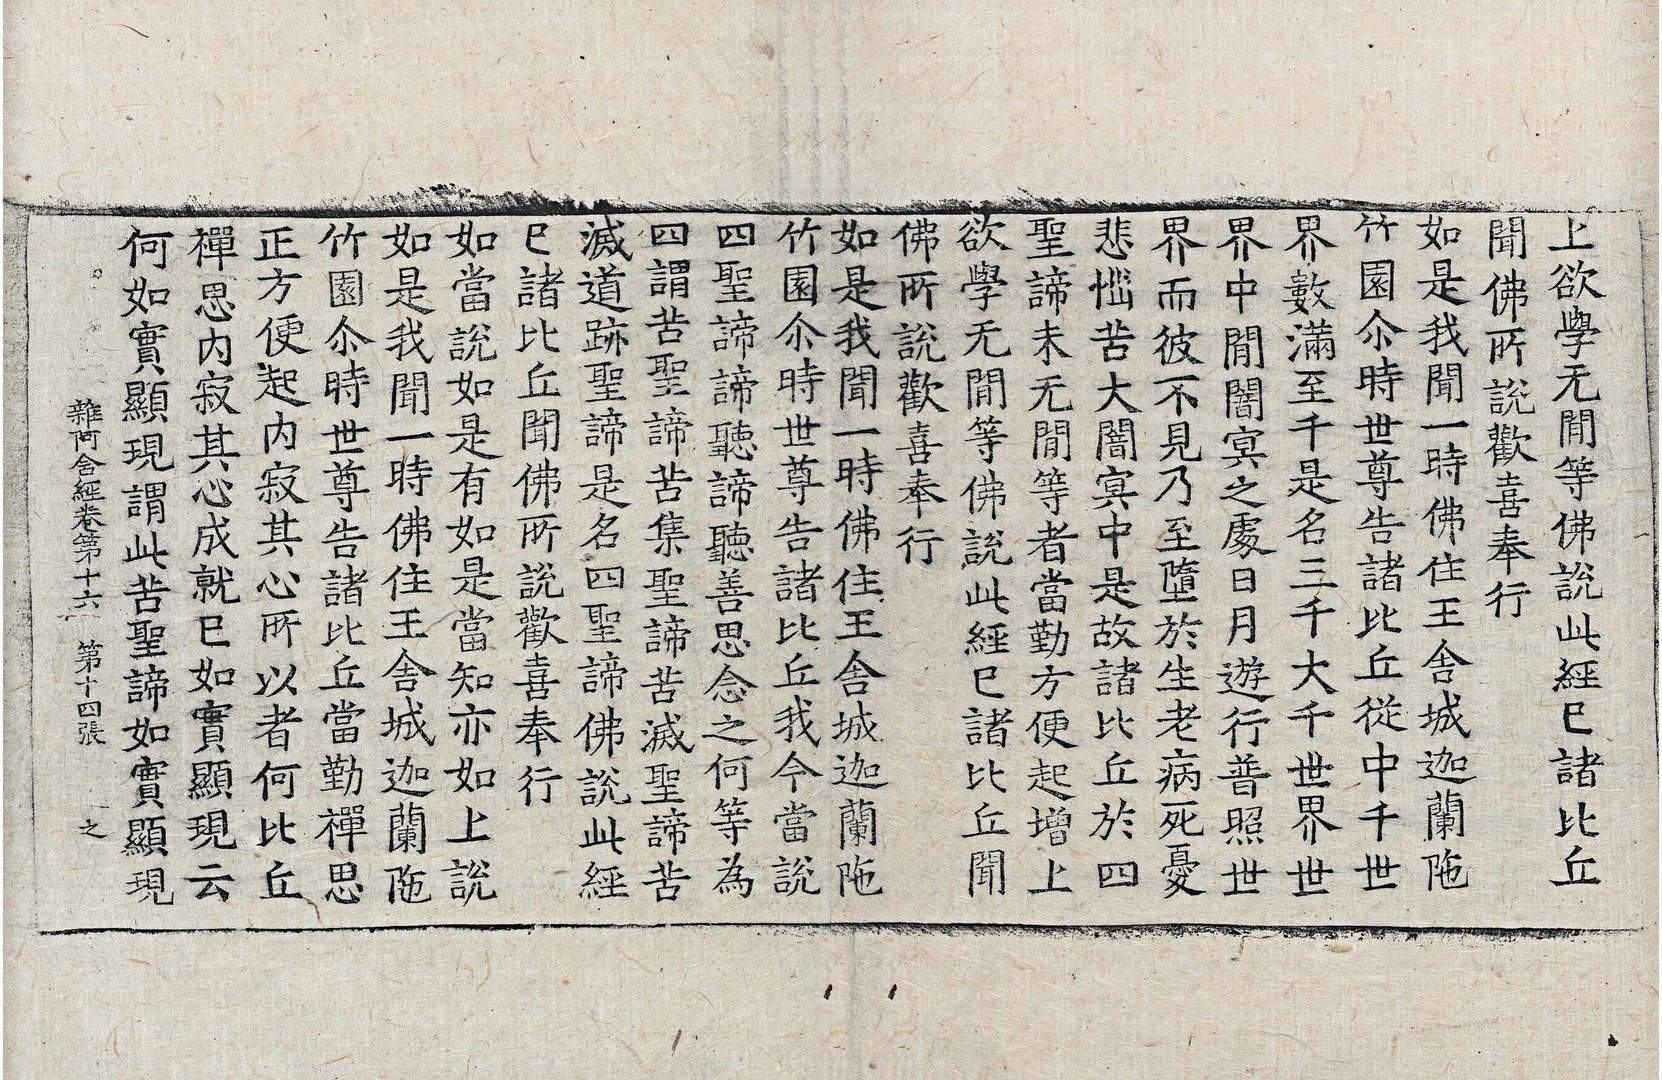 上欲學无閒等佛說此經已諸比丘
聞佛所說歡喜奉行
如是我聞一時佛住王舍城迦蘭陁
竹園尒時世尊告諸比丘從中千世
界數滿至千是名三千大千世界世
界中閒闇冥之處日月遊行普照世
界而彼不見乃至墮於生老病死憂
悲惱苦大闇冥中是故諸比丘於四
聖諦未无閒等者當勤方便起增上
欲學无閒等佛說此經已諸比丘聞
佛所說歡喜奉行
如是我聞一時佛住王舍城迦蘭陁
竹園尒時世尊告諸比丘我今當說
四聖諦諦聽諦聽善思念之何等為
四謂苦聖諦苦集聖諦苦滅聖諦苦
滅道跡聖諦是名四聖諦佛說此經
已諸比丘聞佛所說歡喜奉行
如當說如是有如是當知亦如上說
如是我聞一時佛住王舍城迦蘭陁
竹園尒時世尊告諸比丘當勤禪思
正方便起內寂其心所以者何比丘
禪思內寂其心成就已如實顯現云
何如實顯現謂此苦聖諦如實顯現
雜阿含經卷第十六 第十四張 之